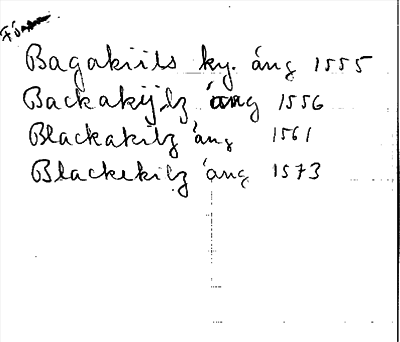 Bagakiils ky. áng 1555
Backakijlz áng 1556
Blackakilz áng 1561
Blackekilz áng 1573